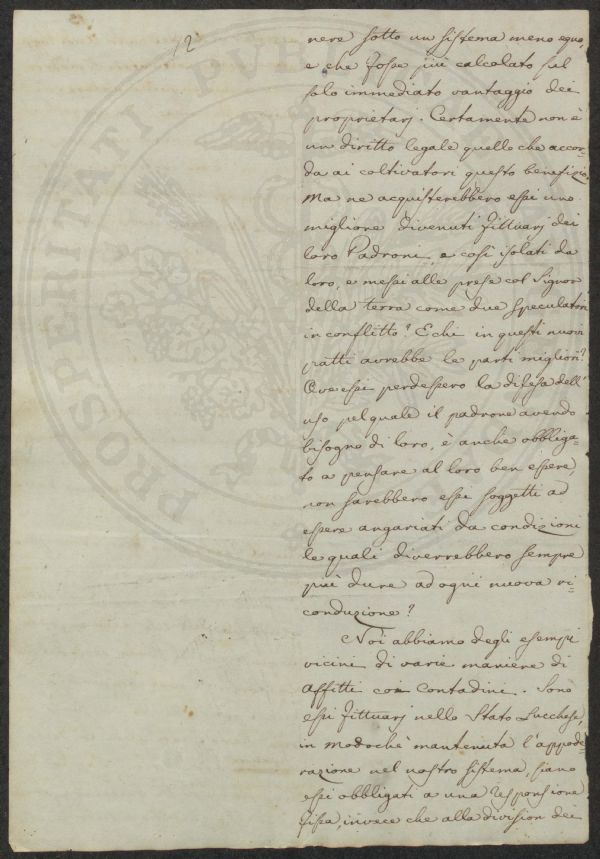 12
nere sotto un sistema meno equo,
e che fosse più calcolato sul
solo immediato vantaggio dei
proprietarj. Certamente non è
un diritto legale quello che accor-
da ai coltivatori questo benefizio.
Ma ne acquisterebbero essi uno
migliore divenuti fittuarj dei
loro Padroni, e così isolati da
loro, e messi alle prese col Signor
della terra come due speculatori
in conflitto? E chi in questi nuovi
patti avrebbe le parti migliori?
Ove essi perdessero la difesa dell'
uso pel quale il padrone avendo
bisogno di loro, è anche obbliga-
to a pensare al loro ben essere,
non sarebbero essi soggetti ad
essere angariati da condizioni
le quali diverrebbero sempre
più dure ad ogni nuova ri-
conduzione?
Noi abbiamo degli esempi
vicini di varie maniere di
affitti con Contadini. Sono
essi fittuarj nello Stato Lucchese,
in modochè mantenuta l'appode-
razione nel nostro sistema, siano
essi obbligati a una responsione
fissa, invece che alla division dei
PROSPERITATI PVB